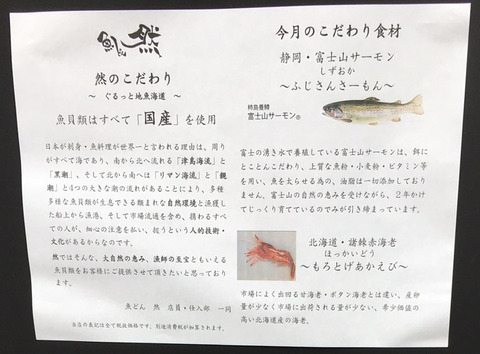 魚どん 然
然のこだわり
～ ぐるっと地魚海道 ～
魚貝類はすべて「国産」を使用
日本が刺身・魚料理が世界一と言われる理由は、周り
がすべて海であり、南から北へ流れる「津島海流」と
「黒潮」、そして北から南へは「リマン海流」と「親
潮」と4つの大きな潮の流れがあることにより、多種
多様な魚貝が生息できる類まれな自然環境と漁獲し
た船上から漁港、そして市場流通を含め、携わるすべ
ての人が、細心の注意を払い、扱うという人的技術・
文化があるからなのです。
然ではそんな、大自然の恵み、漁師の至宝ともいえる
魚貝類をお客様にご提供させて頂きたいと思ってお
ります。
魚どん 然 店員・仕入部 一同
当店の表記は全て税抜価格です。別途消費税が加算されます。
今月のこだわり食材
静岡・富士山サーモン
しずおか
～ふじさんさーもん～
柿島養鱒
富士山サーモン®
富士の湧き水で養殖している富士山サーモンは、餌に
とことんこだわり、上質な魚粉・小麦粉・ビタミン等
を用い、魚を太らせる為の、油脂は一切添加しており
ません。富士山の自然の恵みを受けながら、2年かけ
てじっくり育てているので身が引き締まっています。
北海道・諸棘赤海老
ほっかいどう
～もろとげあかえび～
市場によく出回る甘海老・ボタン海老とは違い、産卵
量が少なく市場に出荷される量が少ない、希少価値の
高い北海道産の海老。